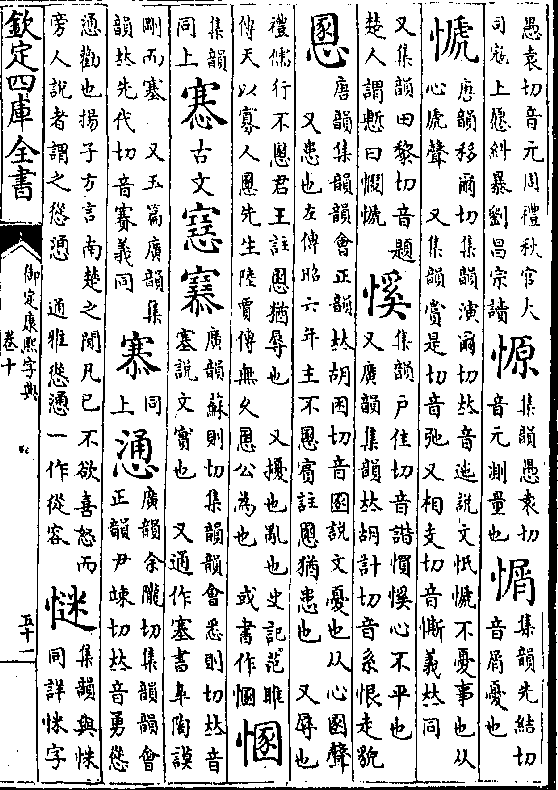 愚袁切音元周禮秋官大
司寇上愿糾暴劉昌宗讀
集韻愚袁切
音元測量也
集韻先結切
音屑憂也
㥴
唐韻移爾切集韻演爾切𠀤音迆說文忯㥴不憂事也从
心虒聲 又集韻賞是切音弛又相支切音㒋義𠀤同
又集韻田黎切音題
楚人謂慙曰㥴
慀
集韻戶佳切音諧慣慀心不平也
又廣韻集韻𠀤胡計切音系恨足貌
慁
唐韻集韻韻會正韻𠀤胡困切音圂說文憂也从心圂聲
又患也左傳昭六年主不慁賓註慁猶患也 又辱也
禮儒行不慁君王註慁猶辱也 又擾也亂也史記范睢
傳天以寡人慁先生陸賈傳無久慁公為也 或書作
集韻
同上
古文
廣韻蘇則切集韻韻會悉則切𠀤音
塞說文實也 又通作塞書臯陶謨
剛而塞 又玉篇廣韻集
韻𠀤先代切音賽義同
同
上
慂
廣韻余隴切集韻韻會
正韻尹竦切𠀤音勇慫
慂勸也揚子方言南楚之閒凡已不欲喜怒而
旁人說者謂之慫慂 通雅慫慂一作從容
集韻與
同詳字
欽定四庫全書
御定康熙字典
卷十
五十一